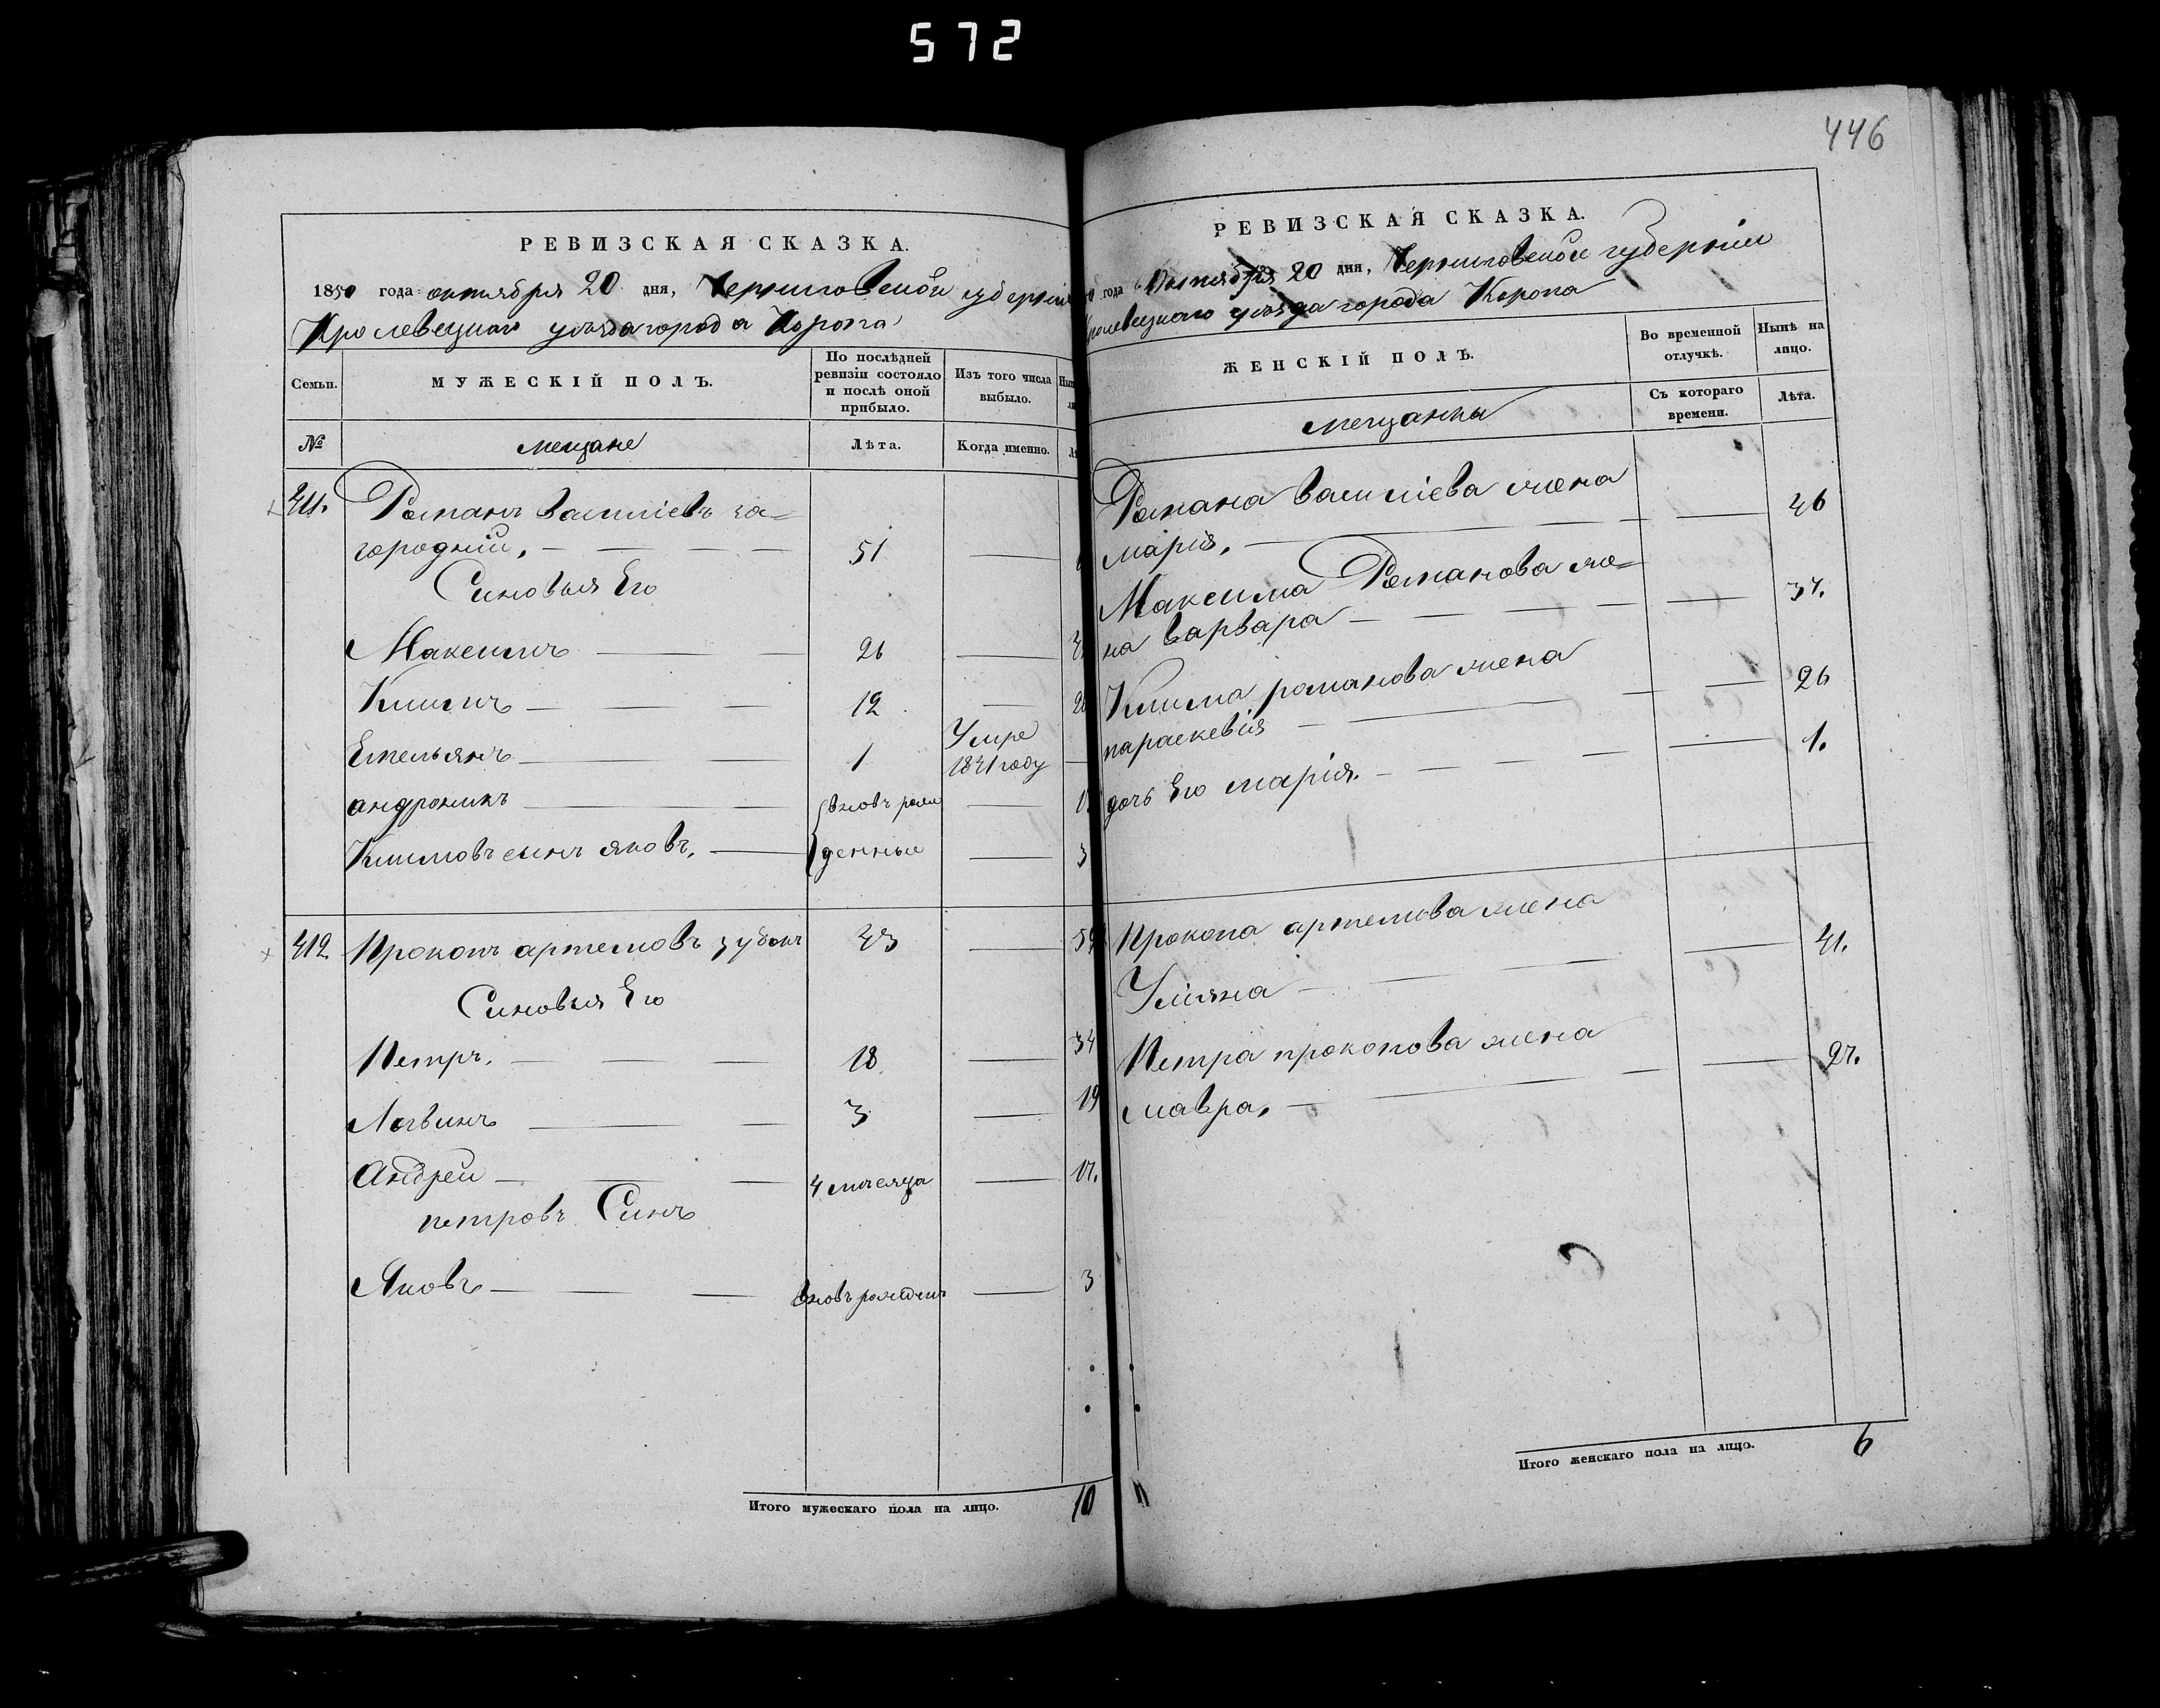 572
446
РЕВИЗСКАЯ СКАЗКА.
1850 года октября 20 дня, Черниговской губерніи
Кролевецкаго уѣзда города Коропа
Семьи.
МУЖЕСКІЙ ПОЛЪ.
По послѣдней
ревизіи состояло
и послѣ оной
прибыло.
Изъ того числа
выбыло.
№
мещане
Лѣта.
Когда именно.
411. Романъ Василіевъ За=
городній. 51
Синовья Его
Максимъ 26
Климъ 12
Емельянъ 1 Умре
1841 году
андроникъ вновь рож
Климовъ синъ яковъ. денные 3
412 Прокопъ артемовъ зубокъ 43
Синовья Его
Петръ. 18 34
Логвинъ 3 19
Андрей 4 месяца 17.
петровъ Синъ
Яковъ вновь рожденъ 3
Итого мужескаго пола на лицо. 10
РЕВИЗСКАЯ СКАЗКА.
года Октября 20 дня, Черниговской губерніи
уѣзда города Коропа
ЖЕНСКІЙ ПОЛЪ.
Во временной
отлучкѣ.
Нынѣ на
лицо.
мещанки
Съ котораго
времени.
Лѣта.
Романа Василіева жена
марія. 46
Максима Романова же=
на варвара 37.
Клима романова жена
параскевія 26
дочь Его марія. 1.
Прокопа артемова жена
Уліяна 41.
Петра прокопова жена
мавра. 27.
Итого женскаго пола на лицо. 6